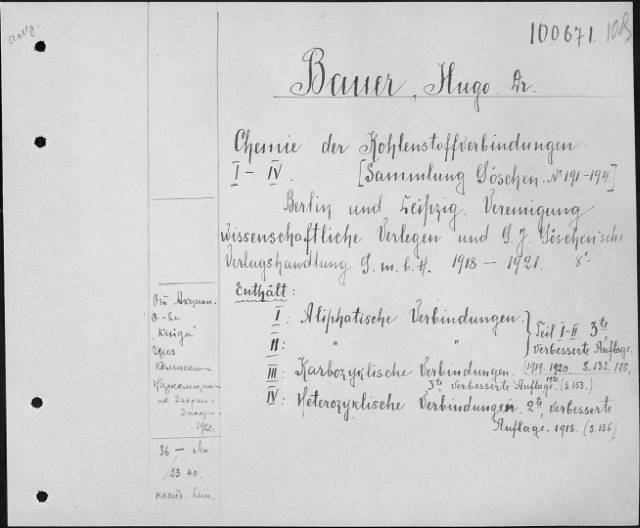 100671.
Bauer, Hugo. Dr.
Chemie der Kohlenstoffverbindungen.
I – IV. [Sammlung Göschen. № 191-194.]
Berlin und Leipzig. Vereinigung
wissenschaftliche Verlegen und G. J. Göschen'sche
Verlagshandlung G. m. b. H. 1918 – 1921. 8°.
Enthält:
I: Aliphatische Verbindungen.
II: " "
Teil I-II 3te
verbesserte Auflage.
(1919. 1920. S. 132.
III: Karbozyklische Verbindungen.
3te verbesserte Auflage. (S. 153.)
IV: Heterozyklische Verbindungen. 2te verbesserte
Auflage. 1918. (S. 136)
От
О-ва
"Книга"
через
36 –
23.40.